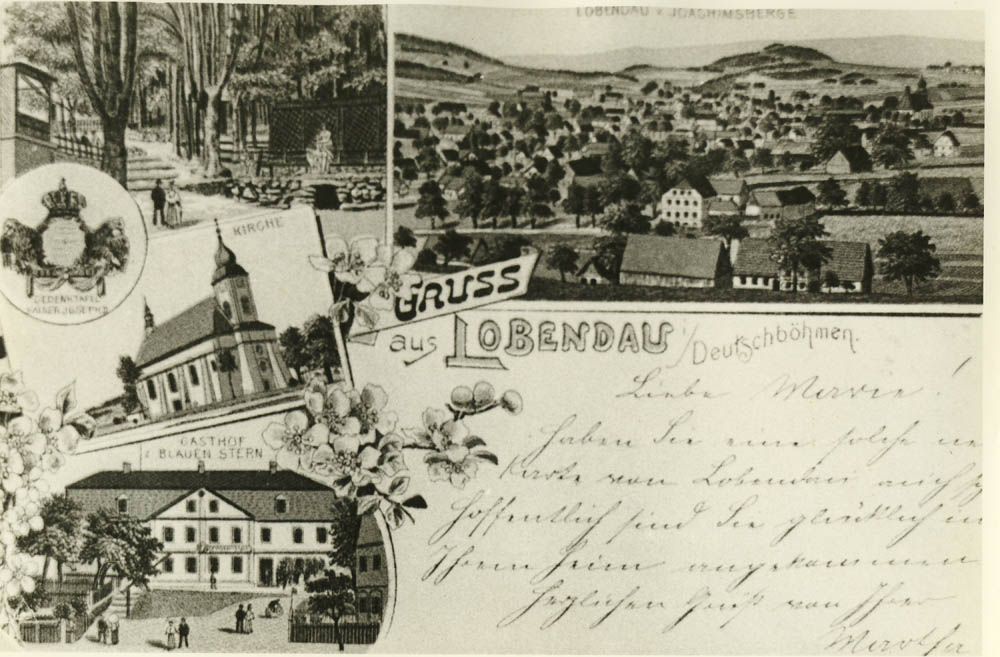 LOBENDAU v. JOACHIMSBERGE
GEDENKTAFEL
KAISER JOSEPH II
KIRCHE
GASTHOF
z BLAUEN STERN
GRUSS
aus LOBENDAU i/Deutschböhmen.
Liebe Marie!
Haben Sie eine solche
Karte von Lobendau auch
Hoffentlich sind Sie glücklich in
Ihrem Heim angekommen
Herzlichen Gruß von Ihrer
Martha